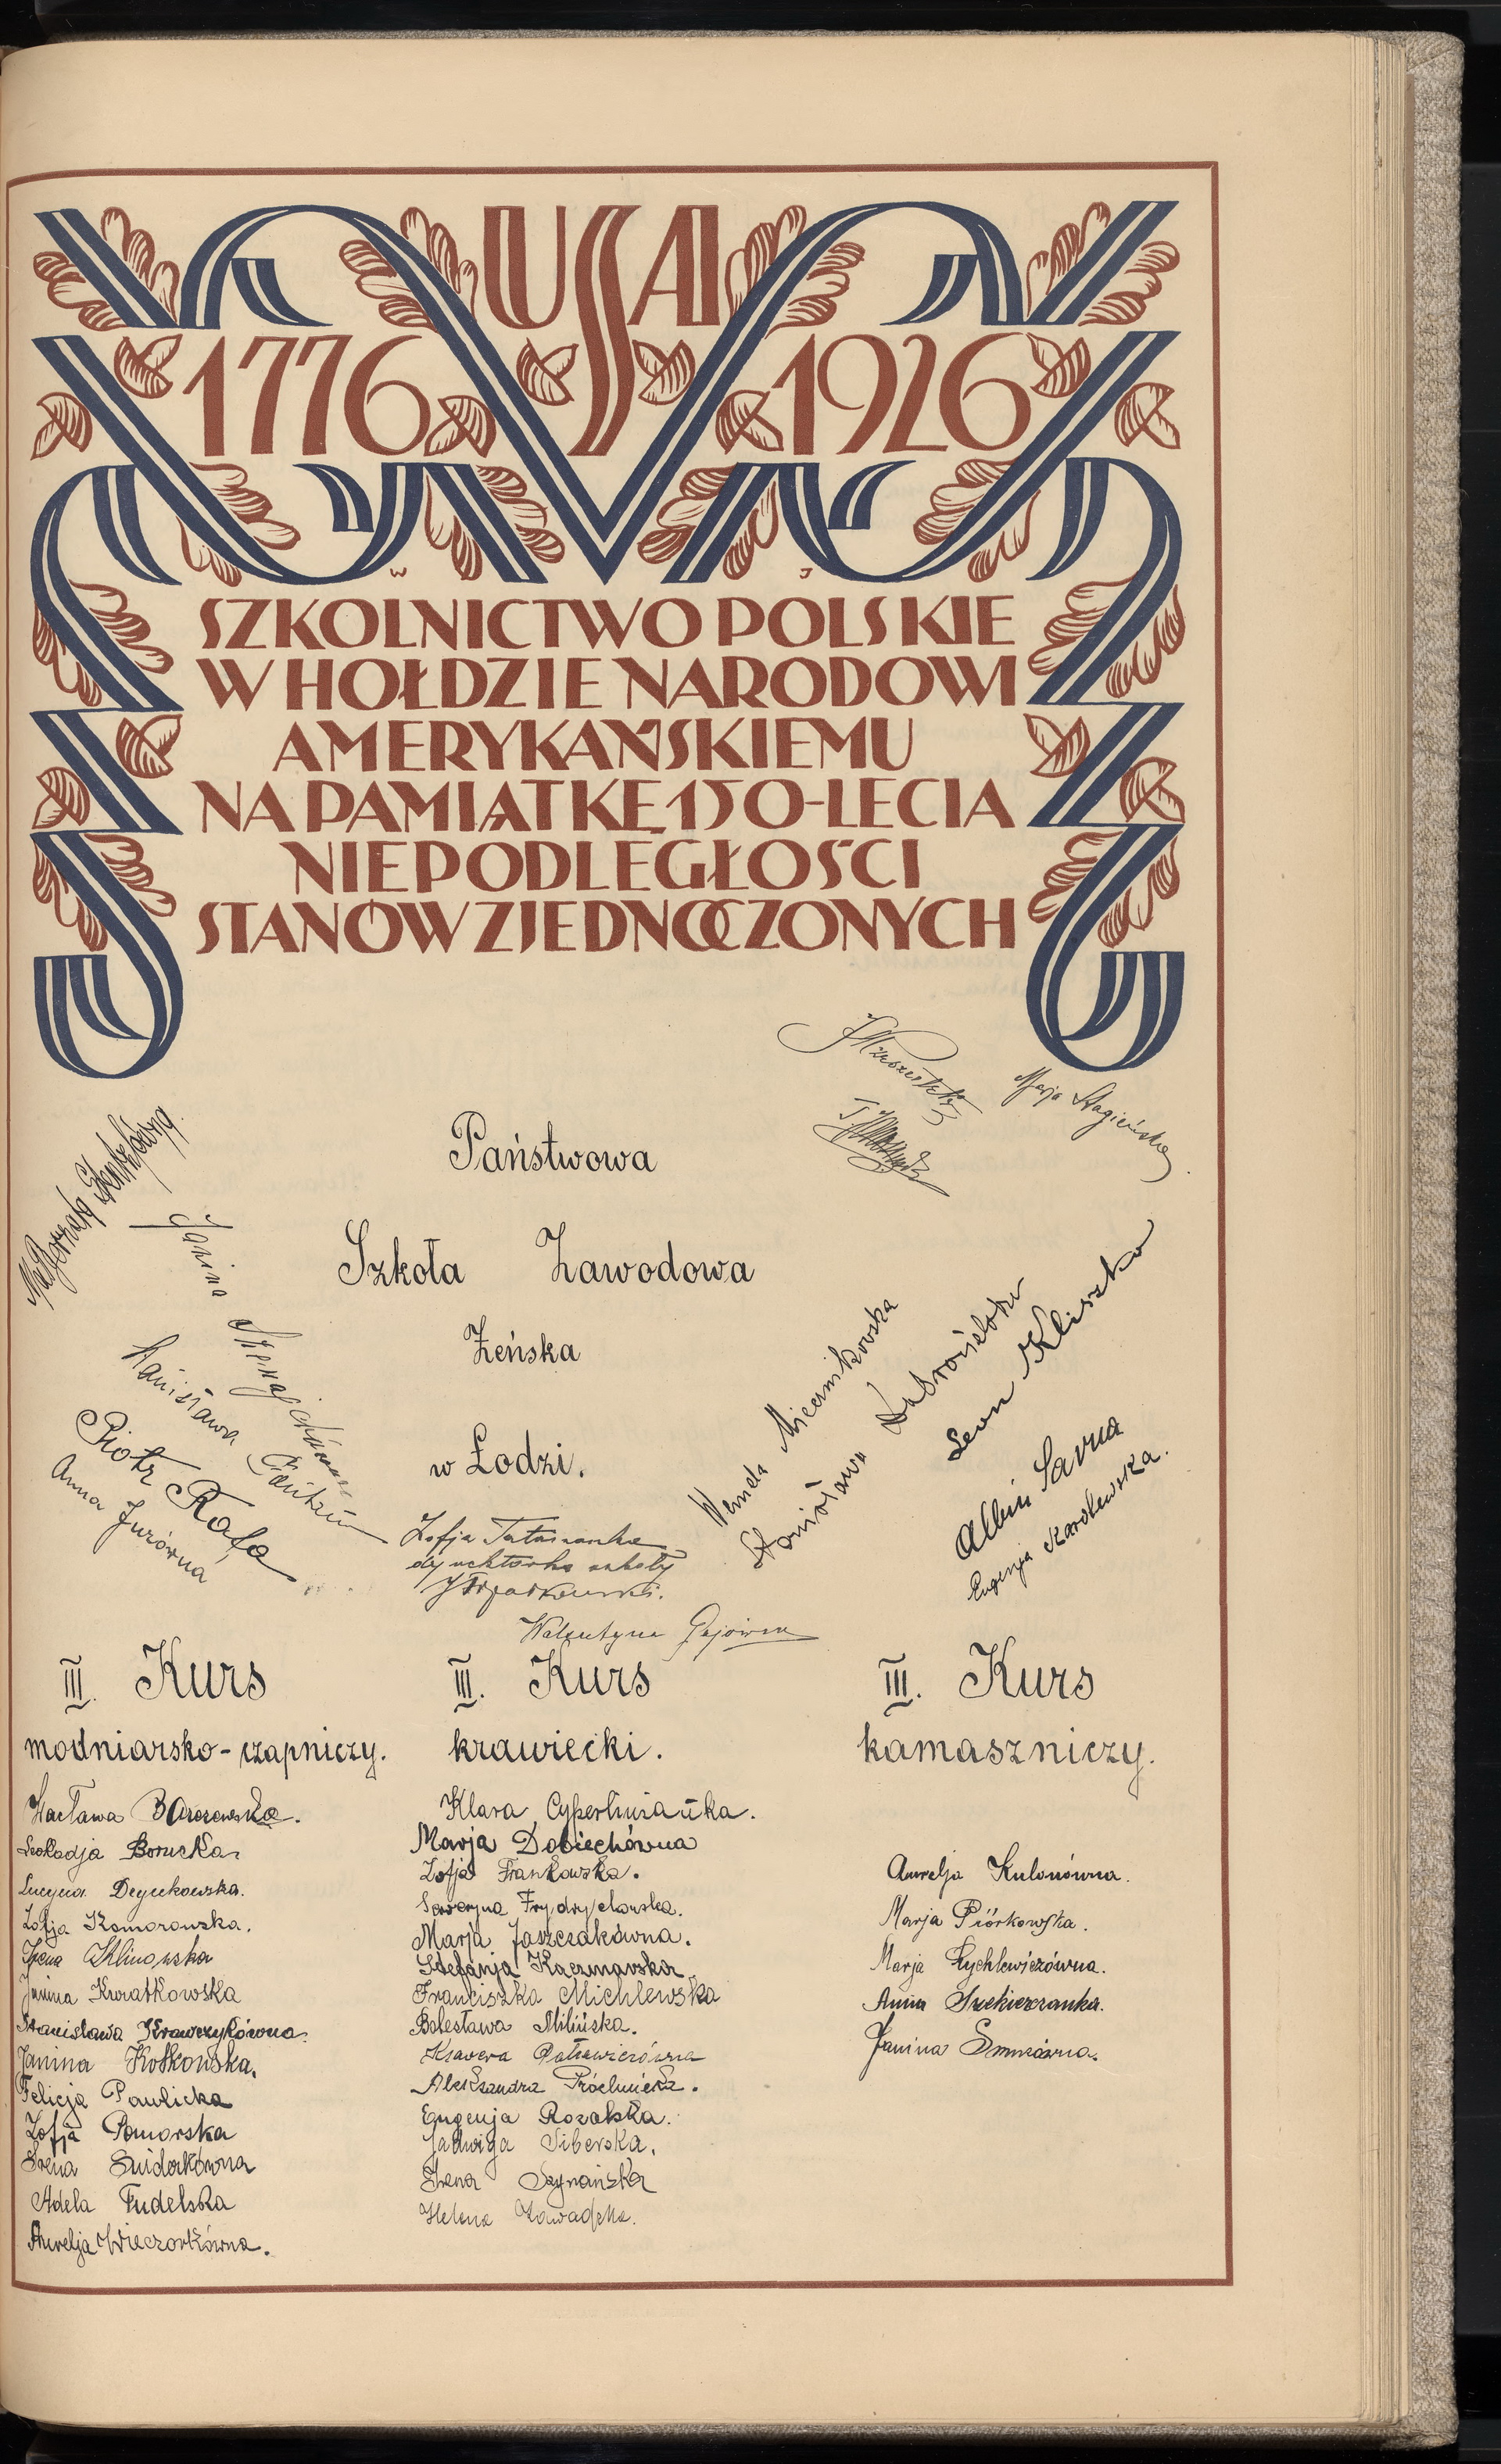 USA
1776 1926
W J
SZKOLNICTWO POLSKIE
W HOŁDZIE NARODOWI
AMERYKAŃSKIEMU
NA PAMIĄTKĘ 150-LECIA
NIEPODLEGŁOŚCI
STANÓW ZJEDNOCZONYCH
Marja
Państwowa
Szkoła Zawodowa
Żeńska
w Łodzi.
Małgorzata
Janina
Piotr Rafa
Anna Jurówna
Wanda Miecznikowska
Stanisława
Leon Kliszko
Albin Sawa
Eugenja Karolewska.
Zofja
dyrektorka szkoły
Walentyna Gajówna
III. Kurs
modniarsko-czapniczy.
Wacława
Leokadja Borucka
Lucyna
Zofja Komorowska.
Irena Klinowska
Janina Kwiatkowska
Stanisława Krawczykówna.
Janina Kotkowska.
Felicja Pawlicka
Zofja Pomorska
Irena Świderkówna
Adela Tudelska
Aurelja Wieczorkówna.
III. Kurs
krawiecki.
Klara
Marja Dobiechówna
Zofja Frankowska.
Seweryna Frydrychowska.
Marja Jaszczakówna.
Stefanja Kaczmarska
Franciszka Michlewska
Bolesława Milińska.
Ksawera
Aleksandra Próchnicka.
Eugenja Rozalska.
Jadwiga Siberska.
Irena
Helena Zawadzka.
III. Kurs
kamaszniczy.
Aurelja Kulonówna.
Marja Piórkowska.
Marja Rychlewiczówna.
Anna
Janina